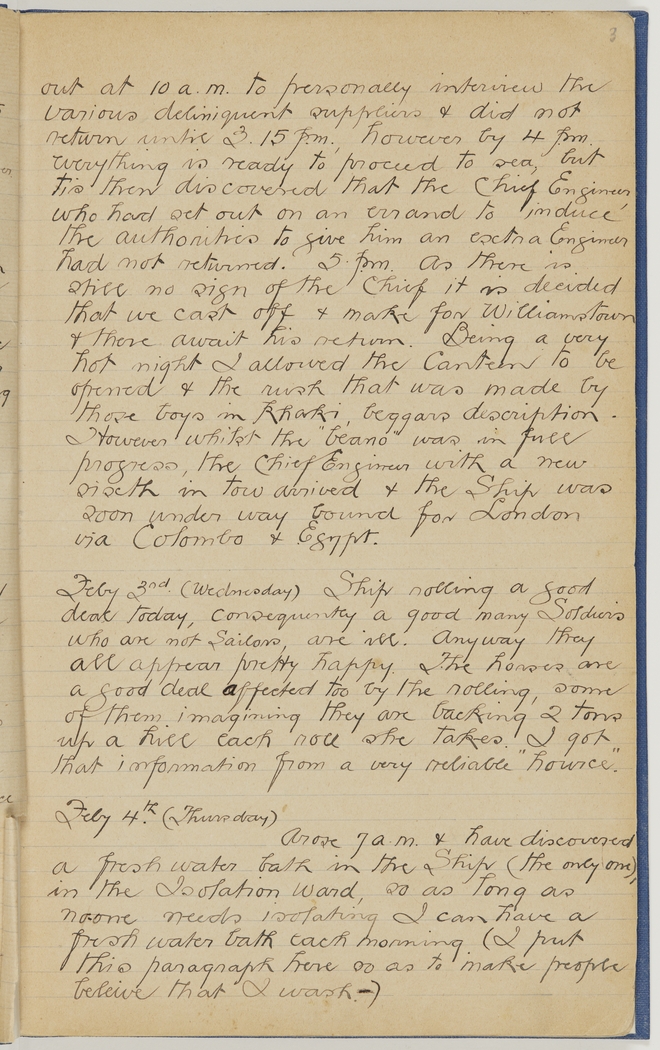 3
out at 10 a.m. to personally interview the
various deliniquent suppliers & did not
return until 3.15 p.m., however by 4 pm.
everything is ready to proceed to sea, but
tis then discovered that the Chief Engineer,
who had set out on an errand to "induce"
the authorities to give him an extra Engineer
had not returned. 5 pm. As there is
still no sign of the Chief it is decided
that we cast off & make for Williamstown
& there await his return. Being a very
hot night I allowed the Canteen to be
opened & the rush that was made by
those boys in Khaki, beggars description.
However whilst the "beano" was in full
progress, the Chief Engineer with a new
sixth in tow arrived & the Ship was
soon under way bound for London
via Colombo & Egypt.
Feby 3rd. (Wednesday) Ship rolling a good
deal today, consequently a good many Soldiers
who are not Sailors, are ill. Anyway they
all appear pretty happy. The horses are
a good deal affected too by the rolling, some
of them imagining they are backing 2 tons
up a hill each roll she takes. I got
that information from a very reliable "howrce".
Feby 4th. (Thursday)
Arose 7 a.m. & have discovered
a fresh water bath in the Ship (the only one),
in the Isolation Ward, so as long as
no-one needs isolating I can have a
fresh water bath each morning (I put
this paragraph here so as to make people
beleive that I wash.-)